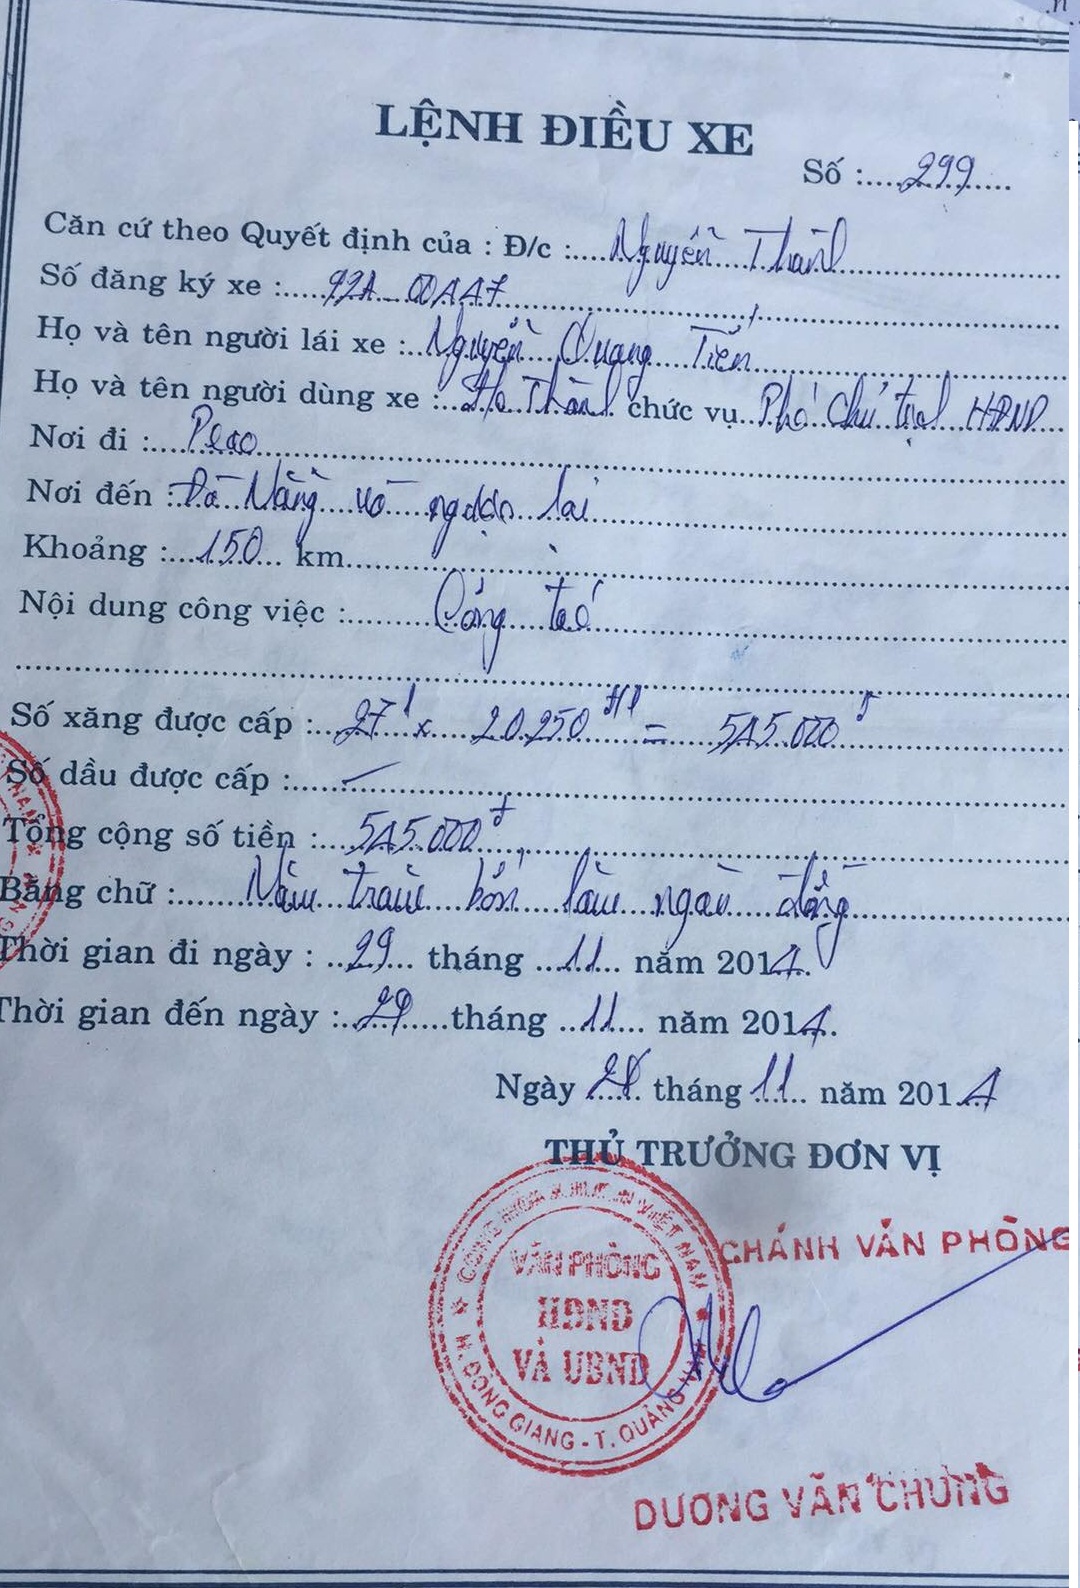 LỆNH ĐIỀU XE
Số : 299
Căn cứ theo Quyết định của : Đ/c : Nguyễn Thành
Số đăng ký xe : 92A_00447
Họ và tên người lái xe : Nguyễn Quang Tiến
Họ và tên người dùng xe : Thành chức vụ Phó Chủ tịch HĐND
Nơi đi : Prao
Nơi đến : Đà Nẵng và ngược lại
Khoảng : 150 km
Nội dung công việc : Công tác
Số xăng được cấp : 27 l x 20.250 đ/l = 545.000 đ
Số dầu được cấp :
Tổng cộng số tiền : 545.000 đ
Bằng chữ : Năm trăm bốn lăm ngàn đồng
Thời gian đi ngày : 29 tháng 11 năm 2014.
Thời gian đến ngày : 29 tháng 11 năm 2014.
Ngày 28 tháng 11 năm 2014
THỦ TRƯỞNG ĐƠN VỊ
CHÁNH VĂN PHÒNG
VĂN PHÒNG
HĐND
VÀ UBND
H. ĐÔNG GIANG - T. QUẢNG NAM
DƯƠNG VĂN CHUNG